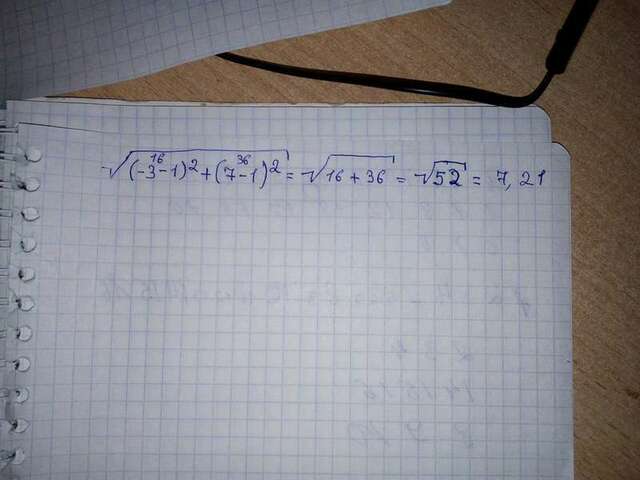 16 36
√(-3-1)²+(7-1)² = √16+36 = √52 = 7,21